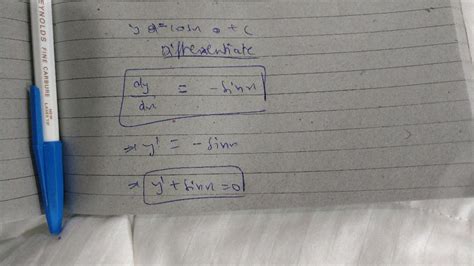 y = cosx + c
Differentiate
dy/dx = -sinx
⇒ y' = -sinx
⇒ y' + sinx = 0
REYNOLDS
FINE CARBURE